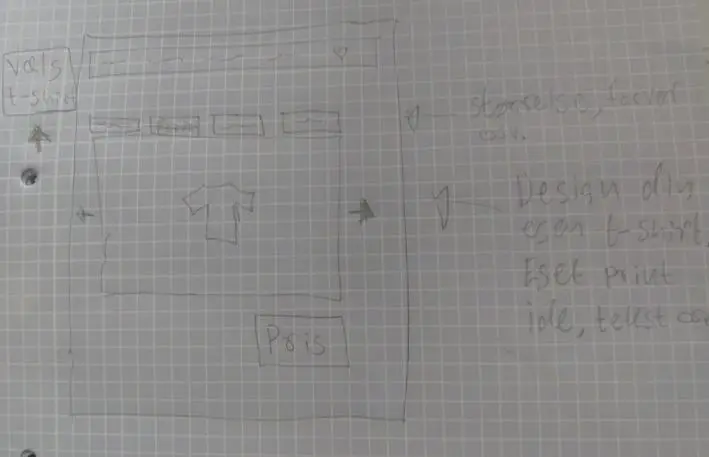 Vælg
t-shirt
størrelse, farver
osv.
Design din
egen t-shirt,
Eget print
ide, tekst os
Pris